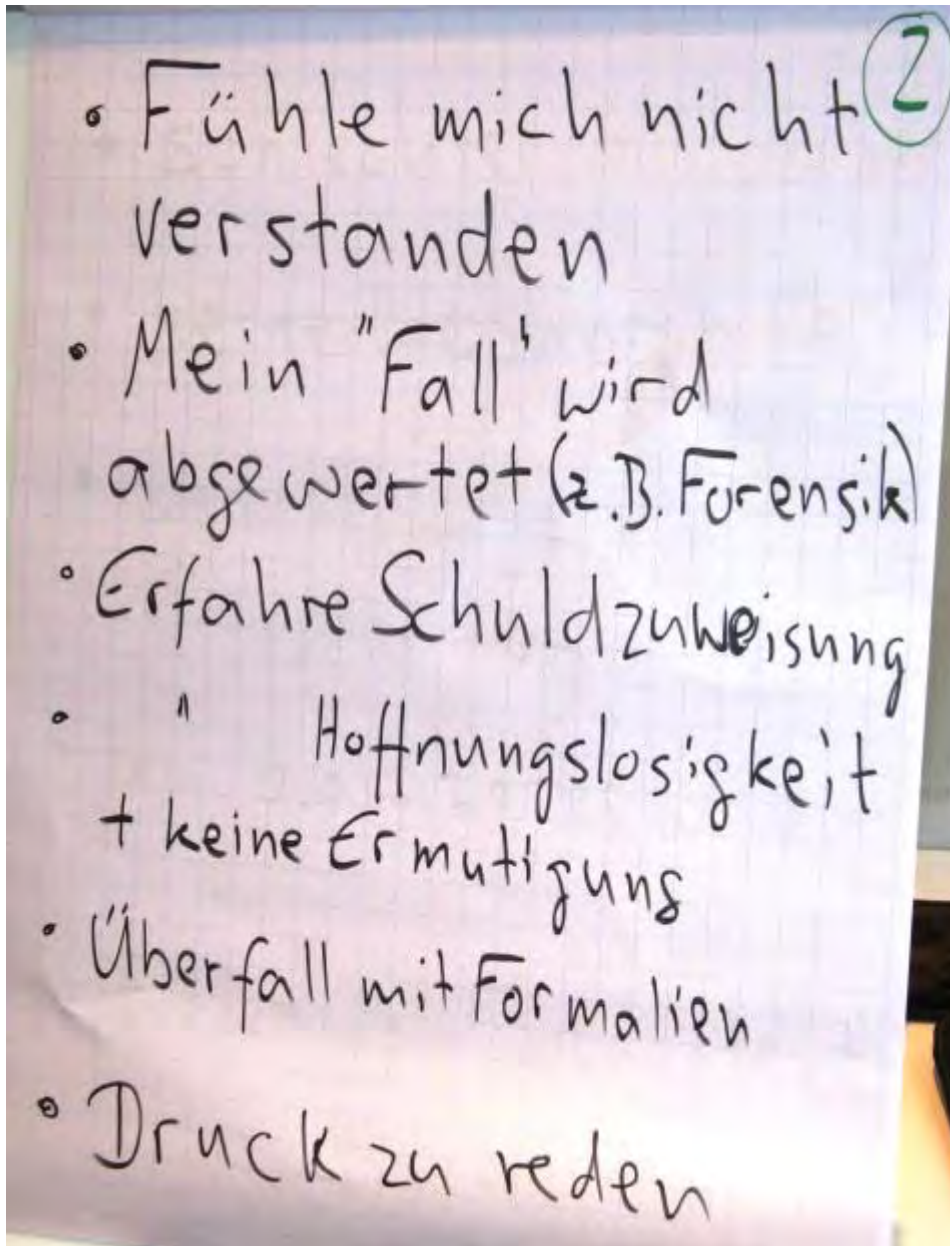 2
• Fühle mich nicht
verstanden
• Mein "Fall" wird
abgewertet (z.B. Forensik)
• Erfahre Schuldzuweisung
• " Hoffnungslosigkeit
+ keine Ermutigung
• Überfall mit Formalien
• Druck zu reden